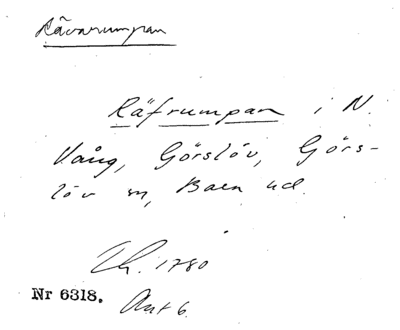 Rävarumpan
Räfrumpan i N.
Vång, Görslöv, Görs-
löv sn, Bara hd.
Th. 1780
Akt 6.
Nr 6318.